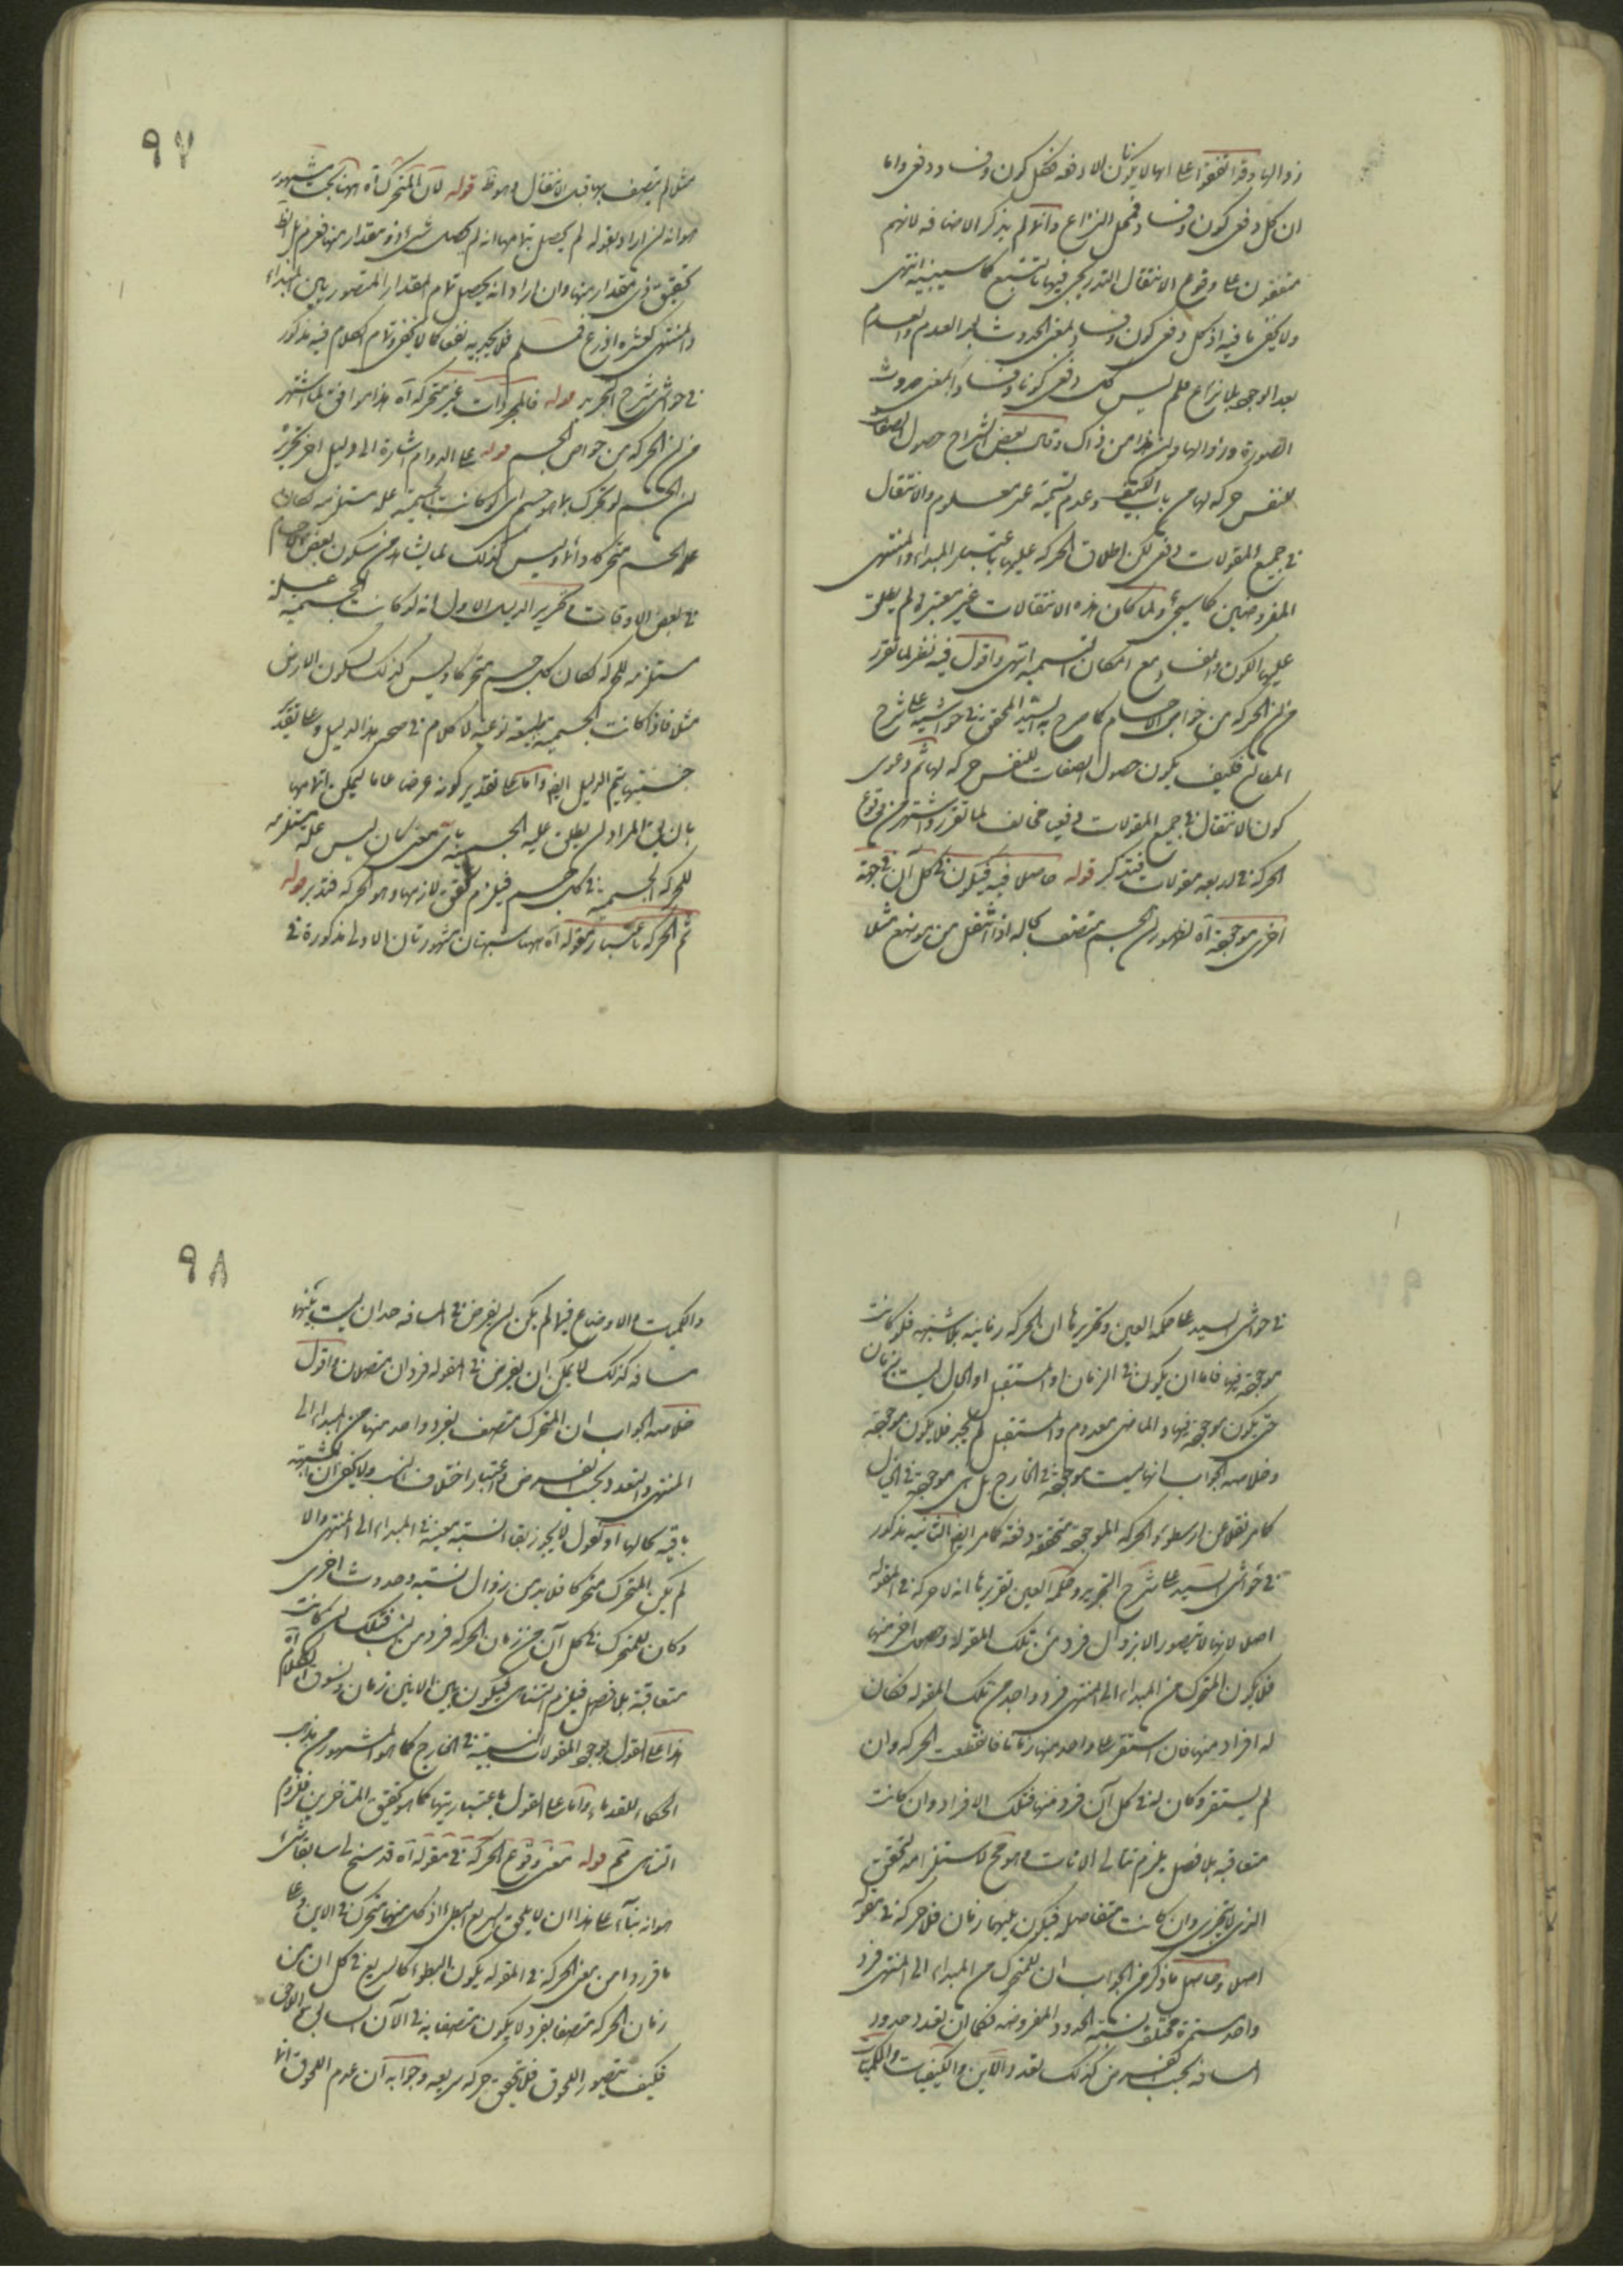 زوالها وقد اتفقوا على انها لا يكونان الا دفعه فكل كون وفساد دفعى واما
ان كل دفعى كون وفساد فمحل النزاع وانما لم يذكر الاضافه لانهم
متفقون على وقوع الانتقال التدريجى فيها بالتبع كما سيبينه انتهى
ولا يخفى ما فيه اذ كل دفعى كون وفساد بمعنى الحدوث بعد العدم والعدم
بعد الوجود بلا نزاع نعم ليس كل دفعى كونا وفسادا بمعنى حدوث
الصورة وزوالها واين هذا من ذاك وقال بعض الشراح حصول الصفات
للنفس حركة لها من باب الكيف وعدم تسميته غير معلوم والانتقال
فى جميع المقولات دفعى لكن اطلاق الحركه عليها باعتبار المبداء والمنتهى
المفروضين كما سيجئ ولما كان هذه الانتقالات غير معتبرة لم يطلق
عليها الكون والفساد مع امكان التسمية انتهى واقول فيه نظر لما تقرر
من ان الحركه من خواص الاجسام كما صرح به السيد المحقق فى حواشيه على شرح
المطالع فكيف يكون حصول الصفات للنفس حركه لها ثم دعوى
كون الانتقال فى جميع المقولات دفعيا مخالف لما تقرر واشتهر من وقوع
الحركه فى اربعه مقولات فتدكر قوله حاصلا فيه فيكون فى كل آن فى جهة
اخرى موجوده آه لظهور ان الجسم متصف بحاله اذا انتقل من موضع مثلا
٩٧
مثلا لم يتصف بها قبل الانتقال وهو ظ قوله لان المتحرك آه ههنا بحث مشهور
هو انه ان اراد بقوله لم يحصل بتمامها انه لم يحصل شئ ذو مقدار منها فغير مسلم بل الظ
تحقيق ذى مقدار منها وان اراد انه لم يحصل تمام المقدار المتصور بين المبداء
والمنتهى كعشره اذرع فمسلم فلا يجديه نفعا كما لا يخفى وتمام الكلام فيه مذكور
فى حواشى شرح التجريد قوله فالمجردات غير متحركه آه هذا موافق لما اشتهر
من ان الحركه من خواص الجسم قوله على الدوام اشارة الى دليل اخر تحريره
ان الجسم لو تحرك بما هو جسم اى لو كانت الجسمية علة مستلزمه لكان
الجسم متحركا دائما وليس كذلك لما يشاهد من سكون بعض الاجسام
فى بعض الاوقات وتحرير الدليل الاول انه لو كانت الجسميه علة
مستلزمه للحركه لكان كل جسم متحركا وليس كذلك لسكون الارض
مثلا فاذا كانت الجسميه طبيعه نوعيه لا كلام فى صحه هذا الدليل وعلى تقدير
جنسيتها يتم الدليل ايضا واما على تقدير كونه عرضا عاما ليمكن اتمامها
بان يق المراد ان يطلق عليه الجسمية باى معنى كان ليس علة مستلزمه
للحركه الجسمية فى كل جسم فيلزم تحقق لازمها وهو الحركه فتدبر قوله
ثم الحركه باعتبار مقوله آه ههنا شبهتان مشهورتان الاولى مذكورة فى
فى حواشى السيد على حكمه العين وتحريرها ان الحركه زمانيه بلا شبهه فلو كانت
موجوده فيها فاما ان يكون فى الزمان او المستقبل او الحال ليست بزمان
حتى يكون موجوده فيها والماضى معدوم والمستقبل لم يجئ فلا يكون موجودة
وخلاصه الجواب انها ليست موجودة فى الخارج بل هى موجوده فى الخيال
كما مر نقلا عن ارسطو والحركه الموجوده متحققه دفعة كما مر ايضا الثانيه مذكور
فى حواشى السيد على شرح التجريد وحكمة العين تقريرها انه لا حركه فى المقوله
اصلا لانها لا يتصور الا بزوال فرد من تلك المقوله وحصول اخر منها
فلا يكون المتحرك من المبداء الى المنتهى فرد واحد من تلك المقوله فكان
له افراد منها فان استقر على واحد منها زمانا فانقطعت الحركه وان
لم يستقر وكان له فى كل آن فرد منها فتلك الافراد ان كانت
متعاقبه بلا فصل يلزم تتالى الانات وهو مح لاستلزامه تحقق
الجزء الذى لا يتجزى وان كانت متفاصله فيكون بينها زمان فلا حركه فى مقوله
اصلا وحاصل ما ذكر من الجواب ان للمتحرك من المبداء الى المنتهى فرد
واحد مستمرة مختلف نسبته الحدود المفروضه فكما ان تعدد حدود
المسافه بحسب الفرض كذلك تعدد الاين والكيفيات والكميات
٩٨
والكميات والاوضاع فيها لم يكن ان يفرض فى المسافه حدان ليست بينهما
مسافه كذلك لا يمكن ان يفرض فى المقوله فردان متصلان واقول
خلاصه الجواب ان المتحرك متصف بفرد واحد منها من المبداء الى
المنتهى والتعدد بحسب الفرض واعتبار اختلاف النسب ولا يخفى ان الشبهه
باقيه بحالها اذ نقول لا يجوز بقاء النسبة معينة فى المبداء الى المنتهى والا
لم يكن المتحرك متحركا فلا بد من زوال نسبه وحدوث اخرى
وكان للمتحرك فى كل آن من زمان الحركه فرد من النسب فتلك ان كانت
متعاقبة بلا فصل فيلزم التتالى فيكون بين الاينين زمان ونسوق الكلام آه
هذا على القول بوجود المقولات النسبيه فى الخارج كما هو المشهور من مذهب
الحكماء القدماء واما على القول باعتباريتها كما هو تحقيق المتاخرين فلزوم
التتالى ثم قوله معنى وقوع الحركه فى مقوله آه قد سنح لى سابقا شئ
هو انه بناء على هذا ان لا يلحق السريع البطئ اذ كل منهما متحرك فى الاين وعلى
ما قرروا من معنى الحركه فى المقوله يكون البطوء كالسريع فى كل ان من
زمان الحركه متصفا بفرد لا يكون متصفا به فى الآن السابق واللاحق
فكيف يتصور اللحوق فلا يتحقق حركه سريعه وجوابه ان عدم اللحوق انما